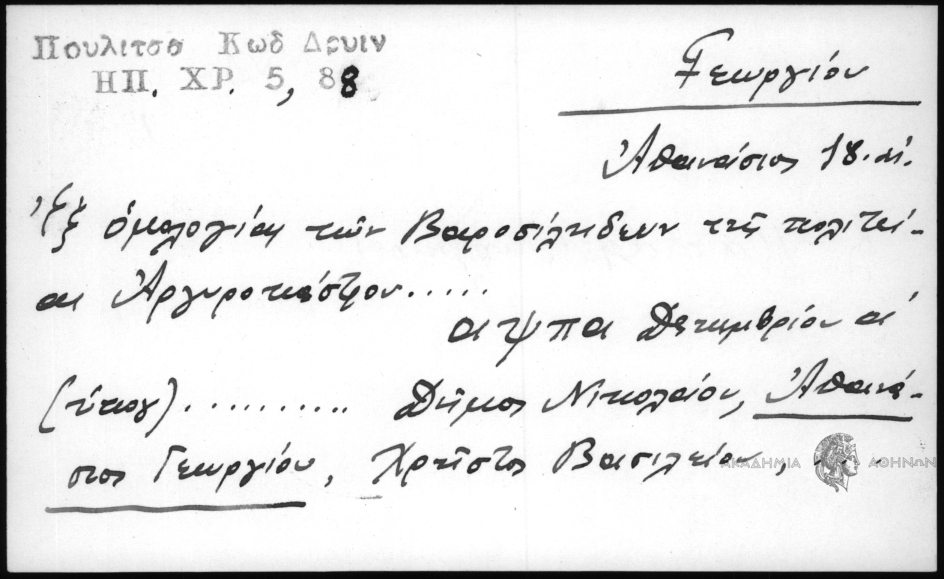 Πουλιτσα Κωδ Δρυιν
ΗΠ. ΧΡ. 5, 88
Γεωργίου
Ἀθανάσιος 18. αἰ.
Ἐξ ὁμολογίας τῶν Βαροσίλιδεων τῆς πολιτεί-
ας Ἀργυροκάστρου.....
αψπα Δεκεμβρίου α'
(ὑπογ).......... Δῆμος Νικολαίου, Ἀθανά-
σιος Γεωργίου, Χρῆστος Βασιλείου, ...
ΑΚΑΔΗΜΙΑ ΑΘΗΝΩΝ